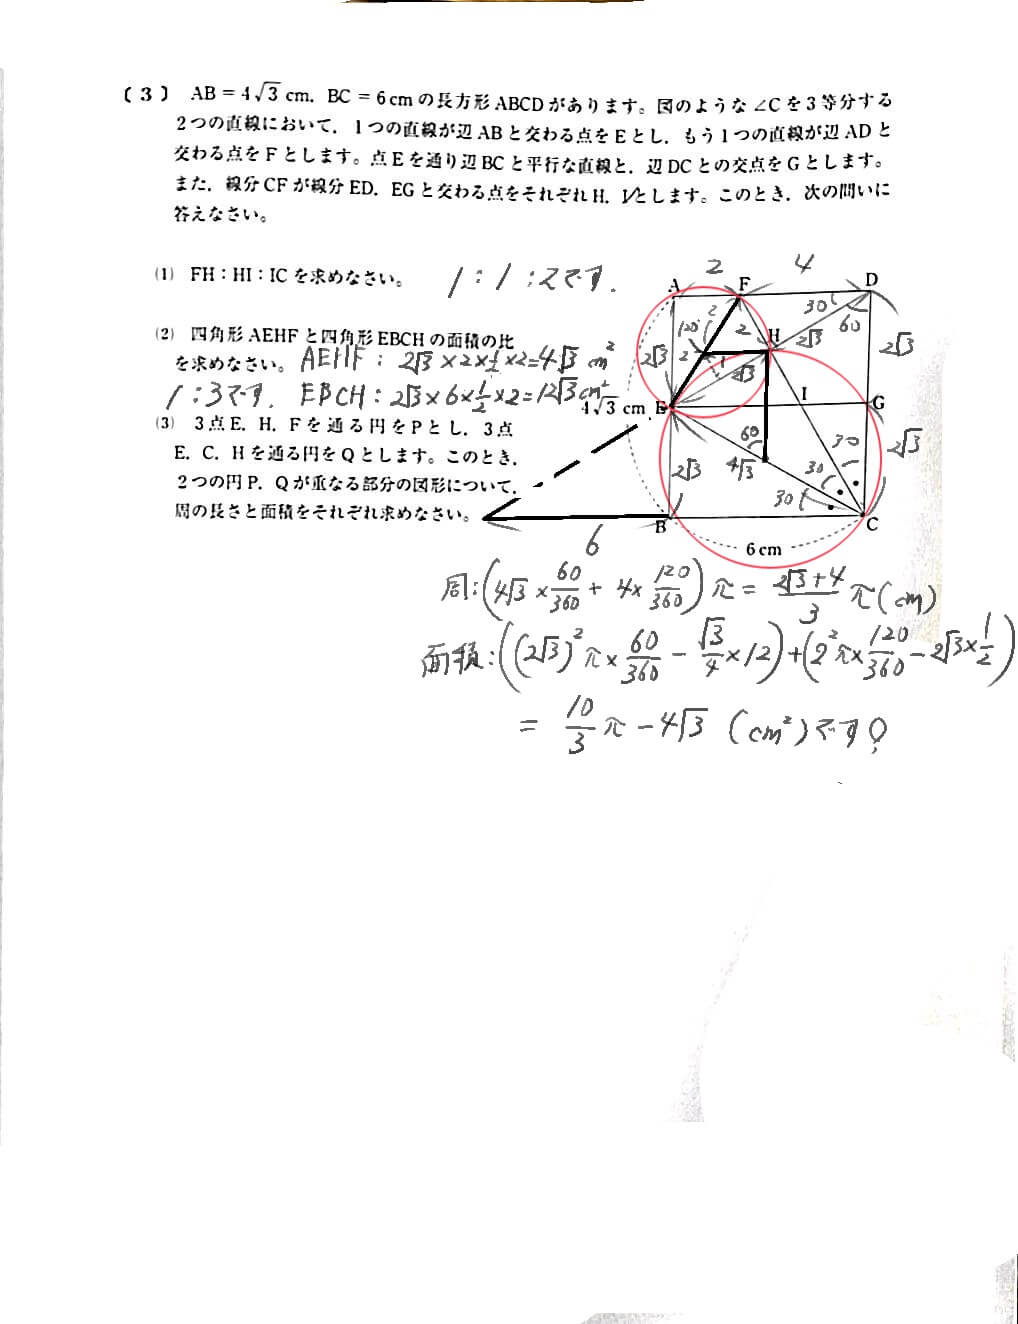 〔3〕 AB = 4√3 cm，BC = 6cmの長方形ABCDがあります。図のような∠Cを3等分する
2つの直線において，1つの直線が辺ABと交わる点をEとし，もう1つの直線が辺ADと
交わる点をFとします。点Eを通り辺BCと平行な直線と，辺DCとの交点をGとします。
また，線分CFが線分ED，EGと交わる点をそれぞれH，Iとします。このとき，次の問いに
答えなさい。
(1) FH：HI：ICを求めなさい。 1：1：2です．
(2) 四角形AEHFと四角形EBCHの面積の比
を求めなさい。 AEHF：2√3×2×1/2×2=4√3 cm²
1：3です． EBCH：2√3×6×1/2×2=12√3cm²
(3) 3点E，H，Fを通る円をPとし，3点
E，C，Hを通る円をQとします。このとき，
2つの円P，Qが重なる部分の図形について，
周の長さと面積をそれぞれ求めなさい。
2 4
A F D
30 60
2 120° 2 H 2√3 2√3
2√3 2 1 2√3
4√3 cm E I G
60 30
2√3 4√3 30 2√3
30
B C
6 6cm
周：(4√3×60/360 + 4×120/360)π = (2√3+4)/3 π(cm)
面積：((2√3)²π×60/360 − √3/4×12)+(2²π×120/360−2√3×1/2)
= 10/3 π − 4√3 (cm²)です。